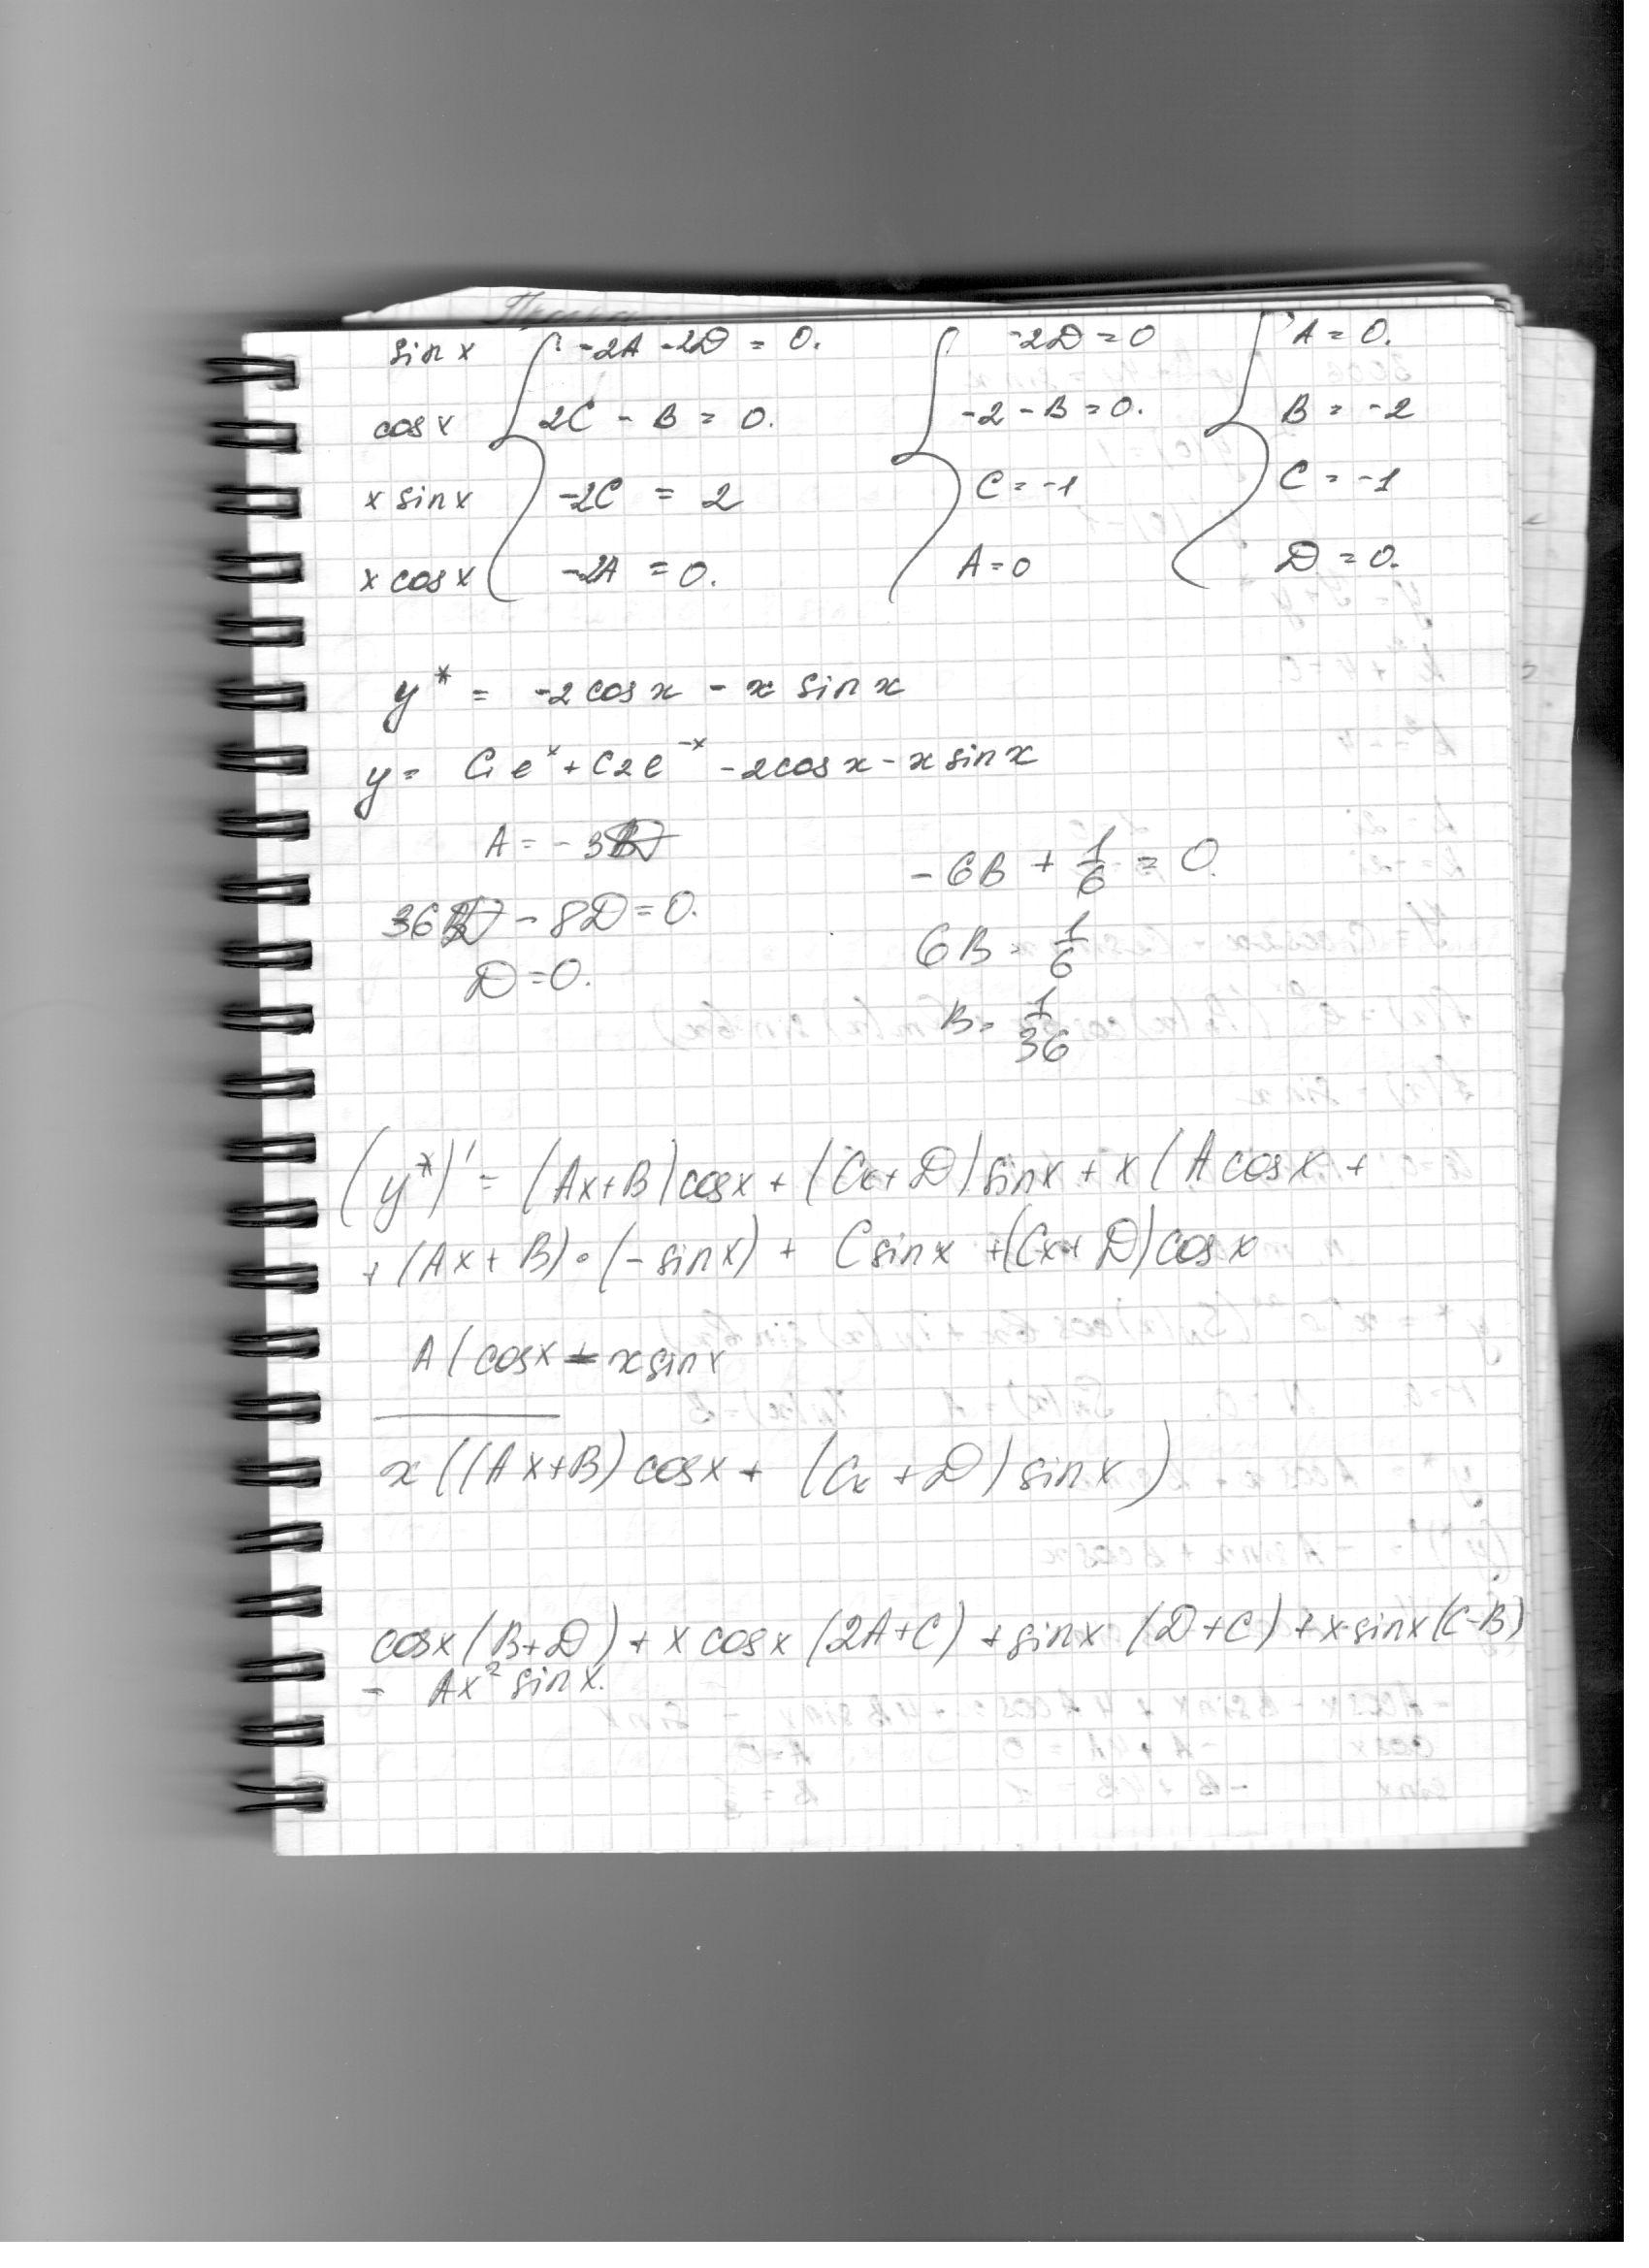 sin x { -2A - 2D = 0. { -2D = 0 { A = 0.
cos x 2C - B = 0. -2 - B = 0. B = -2
x sin x -2C = 2 C = -1 C = -1
x cos x -2A = 0. A = 0 D = 0.
y* = -2cos x - x sin x
y = C₁eˣ + C2e⁻ˣ - 2cos x - x sin x
A = -3D
36D - 8D = 0.
D = 0.
-6B + 1/6 = 0.
6B = 1/6
B = 1/36
(y*)' = (Ax+B)cosx + (Cx+D)sinx + x(Acosx +
+ (Ax+B)·(-sinx) + Csinx + (Cx+D)cosx
A(cosx - x sinx
x((Ax+B)cosx + (Cx+D)sinx)
cosx(B+D) + x cosx(2A+C) + sinx(D+C) + x·sinx(C-B)
- Ax² sinx.